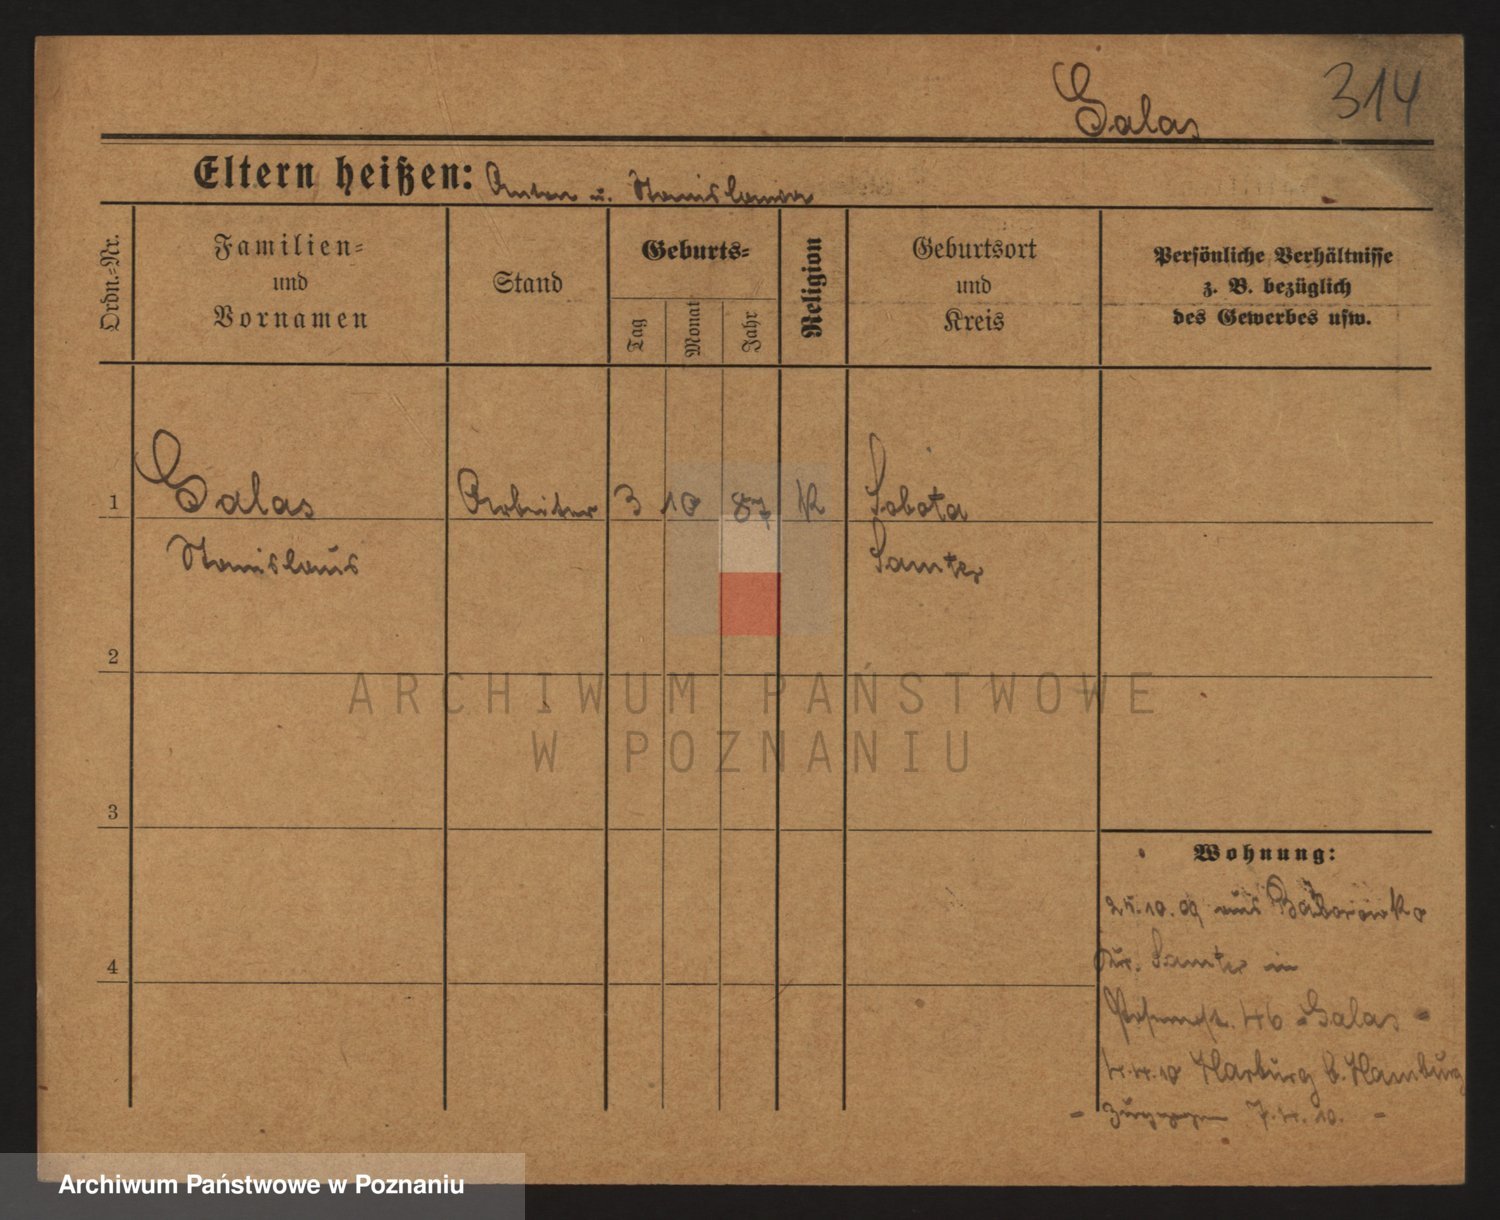 314
Galas
Eltern heißen: Anton u. Stanislawa
Ordn.=Nr.
Familien=
und
Vornamen
Stand
Geburts=
Tag
Monat
Jahr
Religion
Geburtsort
und
Kreis
Persönliche Verhältnisse
z. B. bezüglich
des Gewerbes usw.
1
Galas
Arbeiter
3
10
87
K
Sobota
Stanislaus
Samter
2
ARCHIWUM PAŃSTWOWE
W POZNANIU
3
4
Wohnung:
25.10.09 aus Baborowko
Kr. Samter in
46 - Galas -
4.4.10 Harburg b. Hamburg
- zugezogen 7.4.10. -
Archiwum Państwowe w Poznaniu